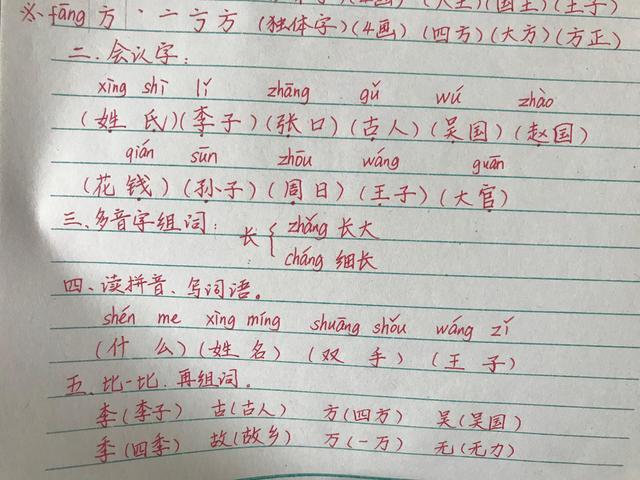 (4画)(大王)(国王)(王子)
※、fāng 方：丶一亏方 (独体字)(4画)(四方)(大方)(方正)
二、会认字：
xìng shì lǐ zhāng gǔ wú zhào
(姓氏)(李子)(张口)(古人)(吴国)(赵国)
qián sūn zhōu wáng guān
(花钱)(孙子)(周日)(王子)(大官)
三、多音字组词：
长 { zhǎng 长大
cháng 细长
四、读拼音、写词语。
shén me xìng míng shuāng shǒu wáng zǐ
(什么)(姓名)(双手)(王子)
五、比一比，再组词。
李(李子) 古(古人) 方(四方) 吴(吴国)
季(四季) 故(故乡) 万(一万) 无(无力)